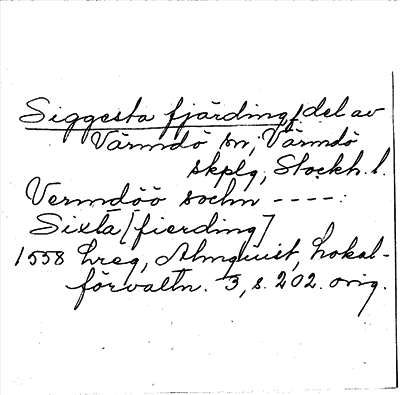 Siggesta fjärding, del av
Värmdö sn, Värmdö
skplg, Stockh. l.
Vermdöö sochn ----:
Sixta [fierding]
1558 hreg, Almquist, Lokal-
förvaltn. 3, s. 202. orig.